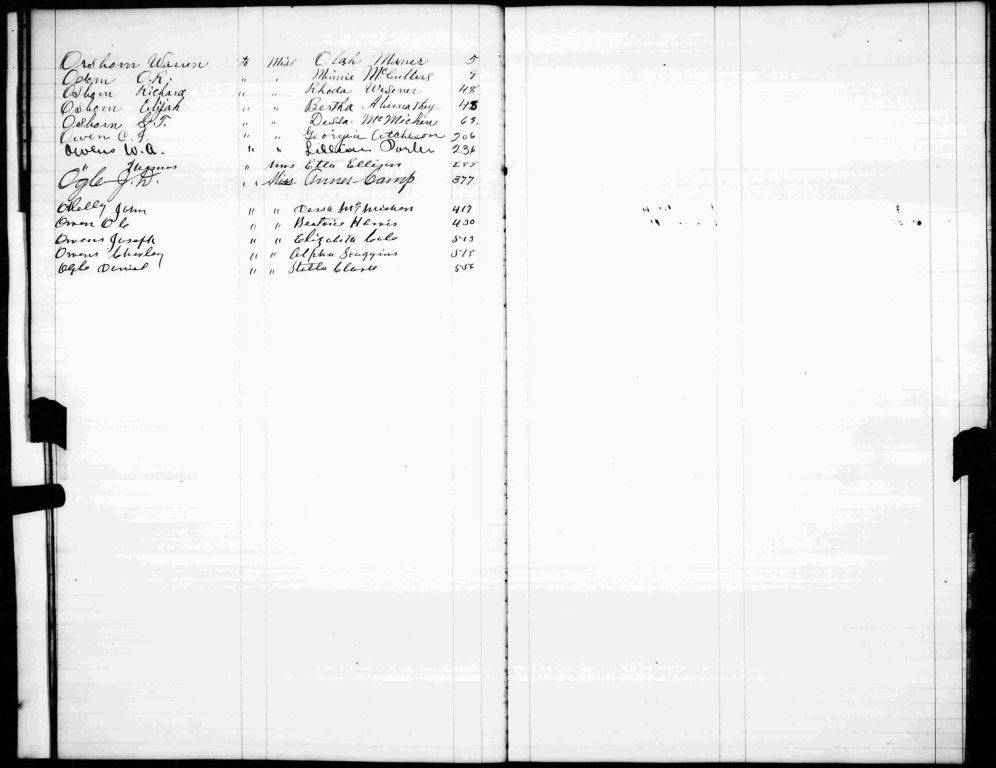 Orsborn Warren to Miss Olah Maner 5
Odom O.R. " " Minnie McCullers 9
Osborn Richard " " Rhoda Wesener 48
Osborn Elijah " " Bertha Abernathy 48
Osborn S.T. " " Dessa McMichen 69
Owen C.F " " Georgia Aitcheson 206
Owens W.A. " " Lillian Porter 236
" Thomas " Mrs Etta Ellison
Ogle J.D. " Miss. Anner Camp 377
Olelly John " " Dessa McMichen 417
Owen O C " " Beatrice Harris 430
Owens Joseph " " Elizabeth Cole 513
Owens Charley " " Alpha Scoggins 515
Ogle Daniel " " Stella Clark 556